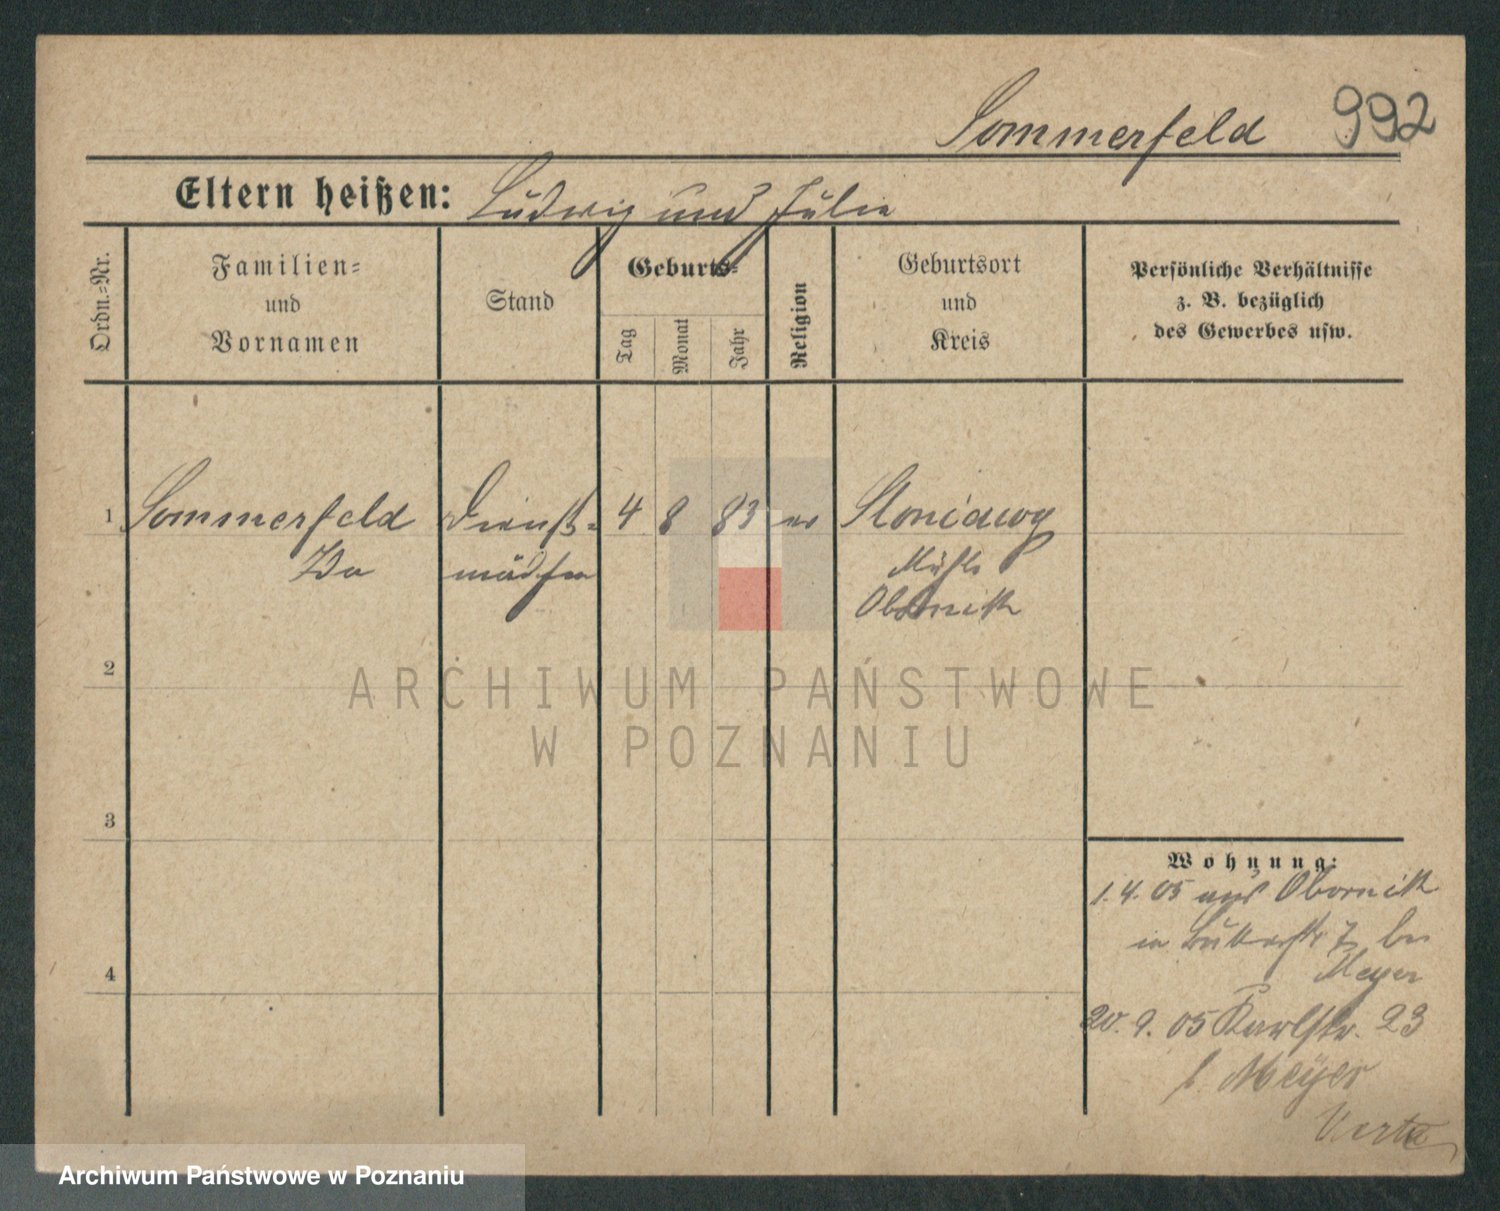 Sommerfeld 992
Eltern heißen: Ludwig und Julie
Ordn.-Nr.
Familien-
und
Vornamen
Stand
Geburts-
Tag
Monat
Jahr
Religion
Geburtsort
und
Kreis
Persönliche Verhältnisse
z. B. bezüglich
des Gewerbes usw.
1 Sommerfeld Dienst- 4 8 83 ev
Ida mädchen Mühle
Obornik
2
ARCHIWUM PAŃSTWOWE
W POZNANIU
3
4
Wohnung:
1. 4. 05 aus Obornik
in 7 bei
Meyer
20. 9. 05 Karlstr. 23
b. Meyer
Archiwum Państwowe w Poznaniu